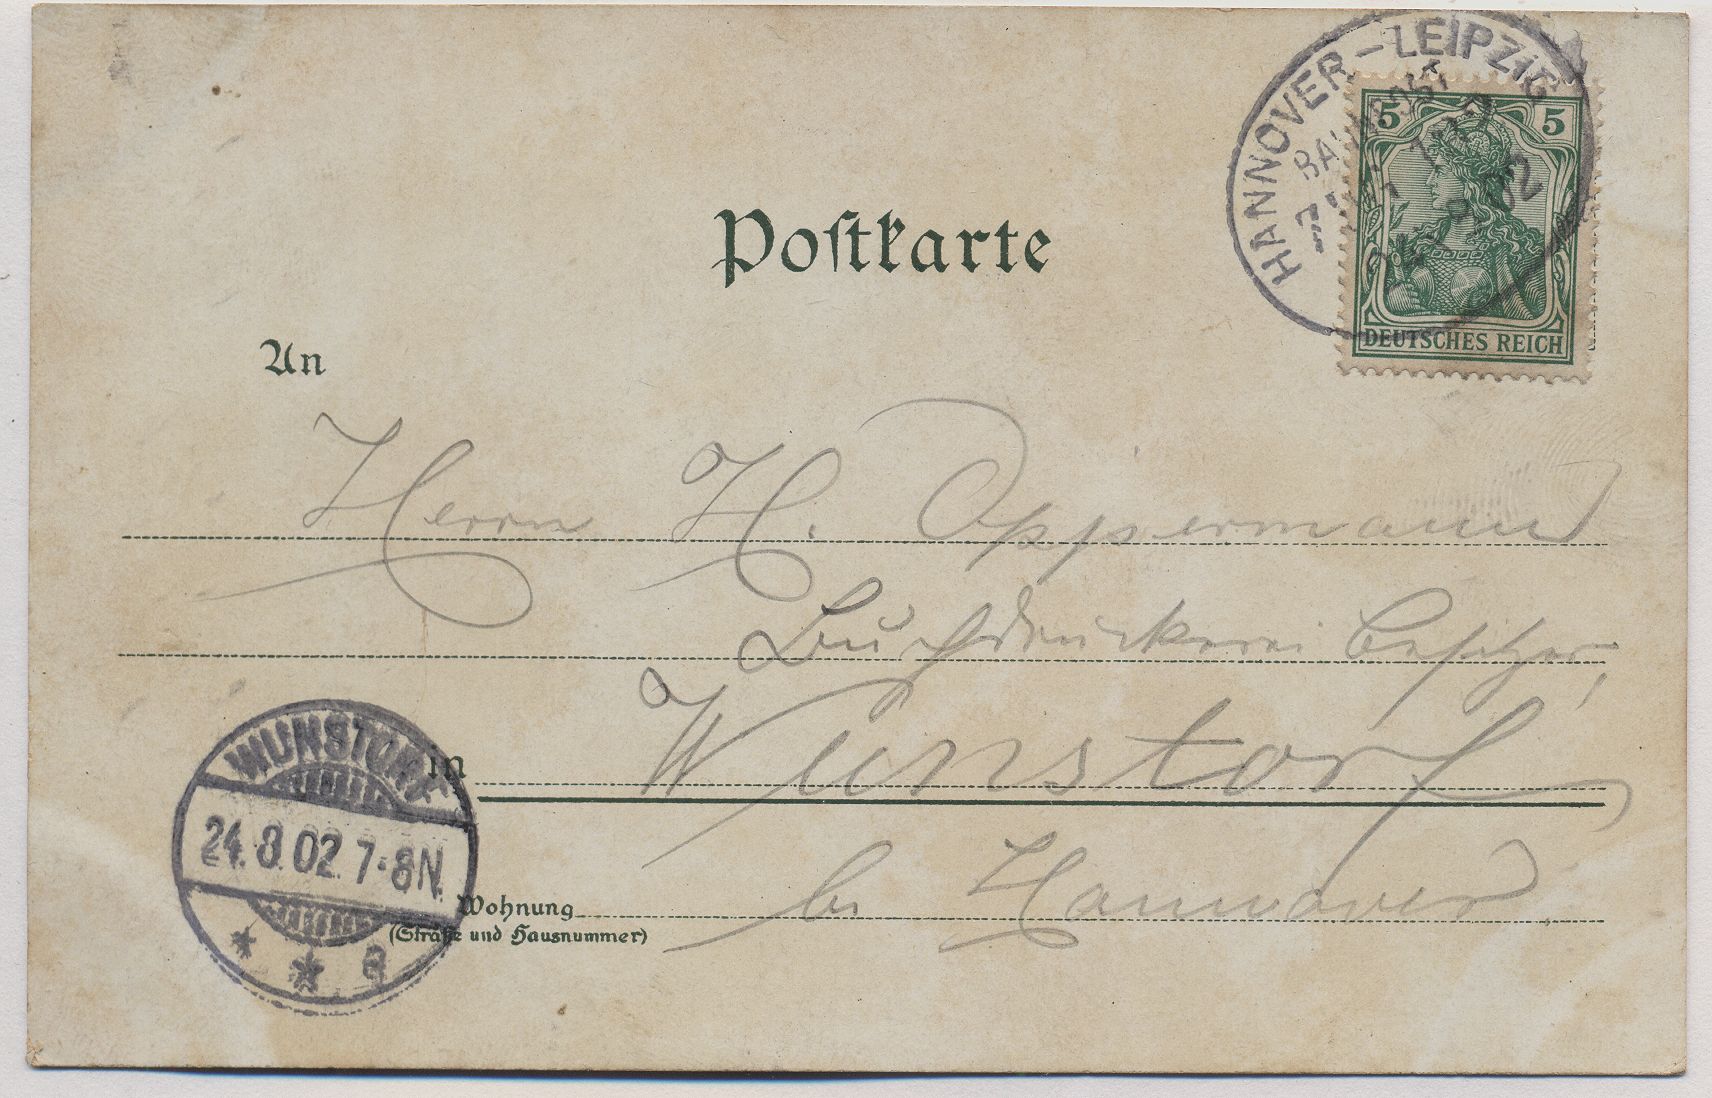 HANNOVER – LEIPZIG
BAHNPOST
24 8 02
5 5
DEUTSCHES REICH
Postkarte
An
Herrn H. Oppermann
Buchdruckerei Besitzer,
in Wunstorf
bei Hannover.
Wohnung
(Straße und Hausnummer)
WUNSTORF
24.8.02. 7-8N.
* * a